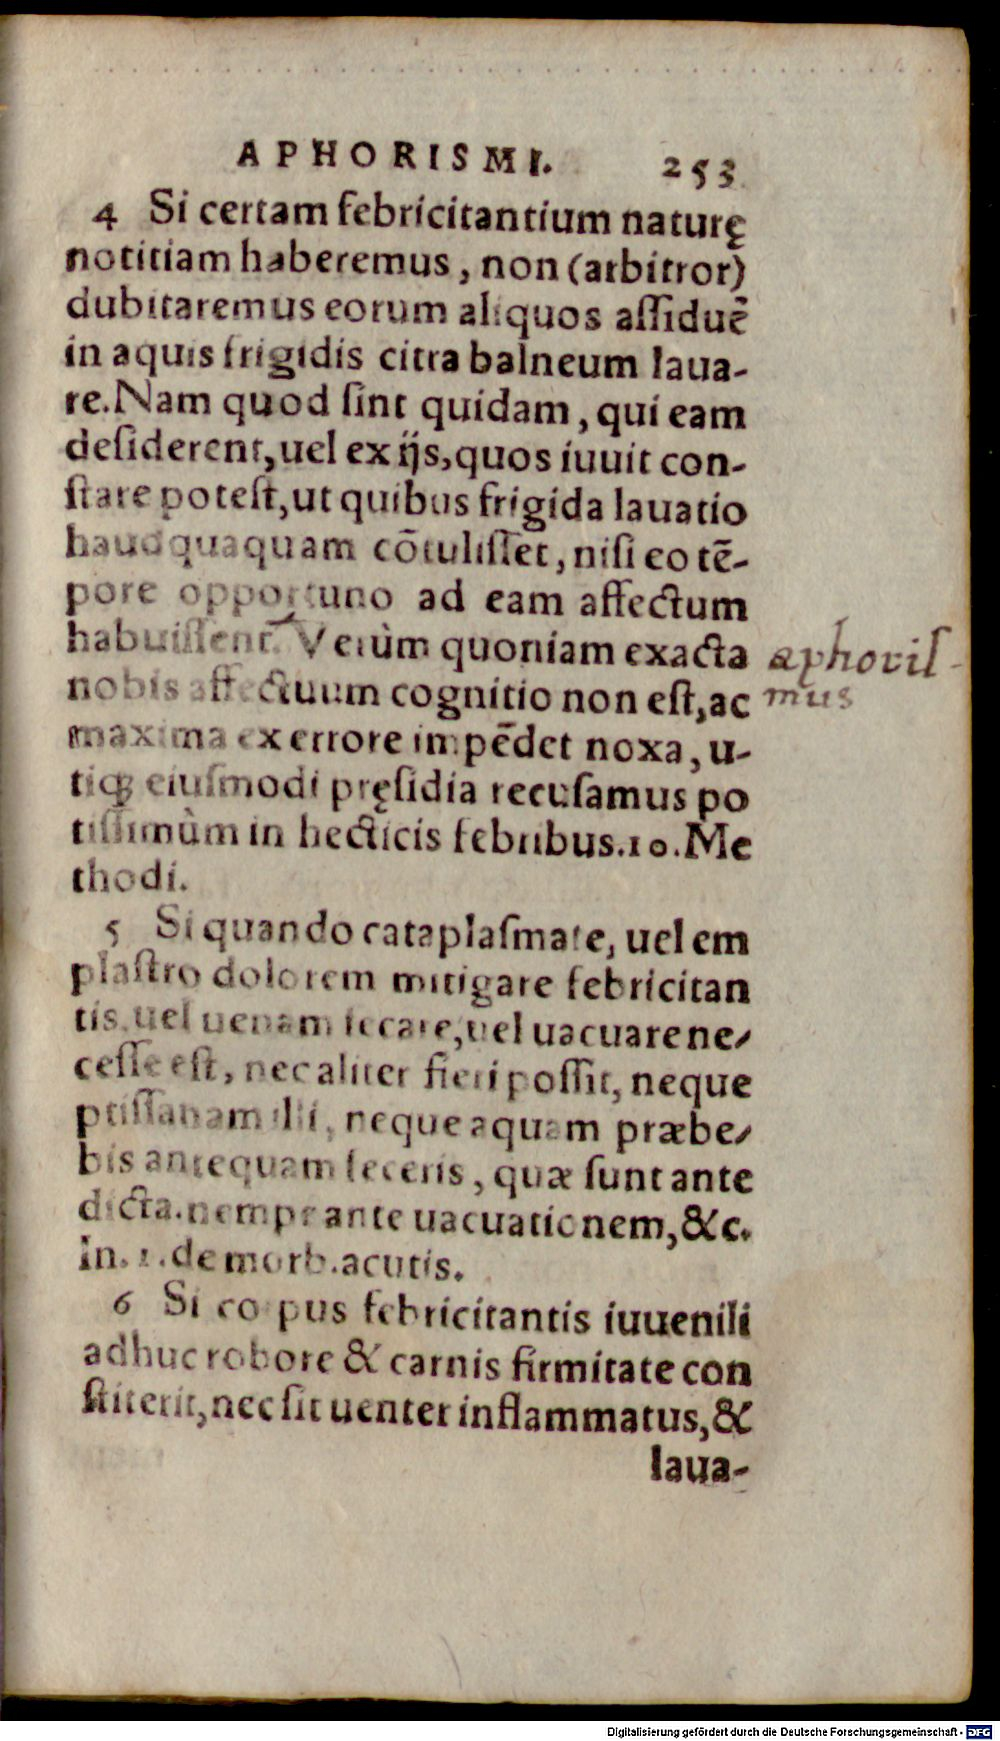 APHORISMI. 253
4 Si certam febricitantium naturę
notitiam haberemus, non (arbitror)
dubitaremus eorum aliquos aſſiduè
in aquis frigidis citra balneum laua-
re. Nam quod ſint quidam, qui eam
deſiderent, uel ex ijs, quos iuuit con-
ſtare poteſt, ut quibus frigida lauatio
haudquaquam cōtuliſſet, niſi eo tē-
pore opportuno ad eam affectum
habuiſſent. Verùm quoniam exacta
nobis affectuum cognitio non eſt, ac
maxima ex errore impēdet noxa, u-
tiqꝫ eiuſmodi pręſidia recuſamus po
tiſſimùm in hecticis febribus. 10. Me
thodi.
aphoriſ-
mus
5 Si quando cataplaſmate, uel em
plaſtro dolorem mitigare febricitan
tis, uel uenam ſecare, uel uacuare ne-
ceſſe eſt, nec aliter fieri poſſit, neque
ptiſſanam illi, neque aquam præbe-
bis antequam feceris, quæ ſunt ante
dicta. nempe ante uacuationem, &c.
In. 1. de morb. acutis.
6 Si corpus febricitantis iuuenili
adhuc robore & carnis firmitate con
ſtiterit, nec ſit uenter inflammatus, &
laua-
Digitalisierung gefördert durch die Deutsche Forschungsgemeinschaft - DFG